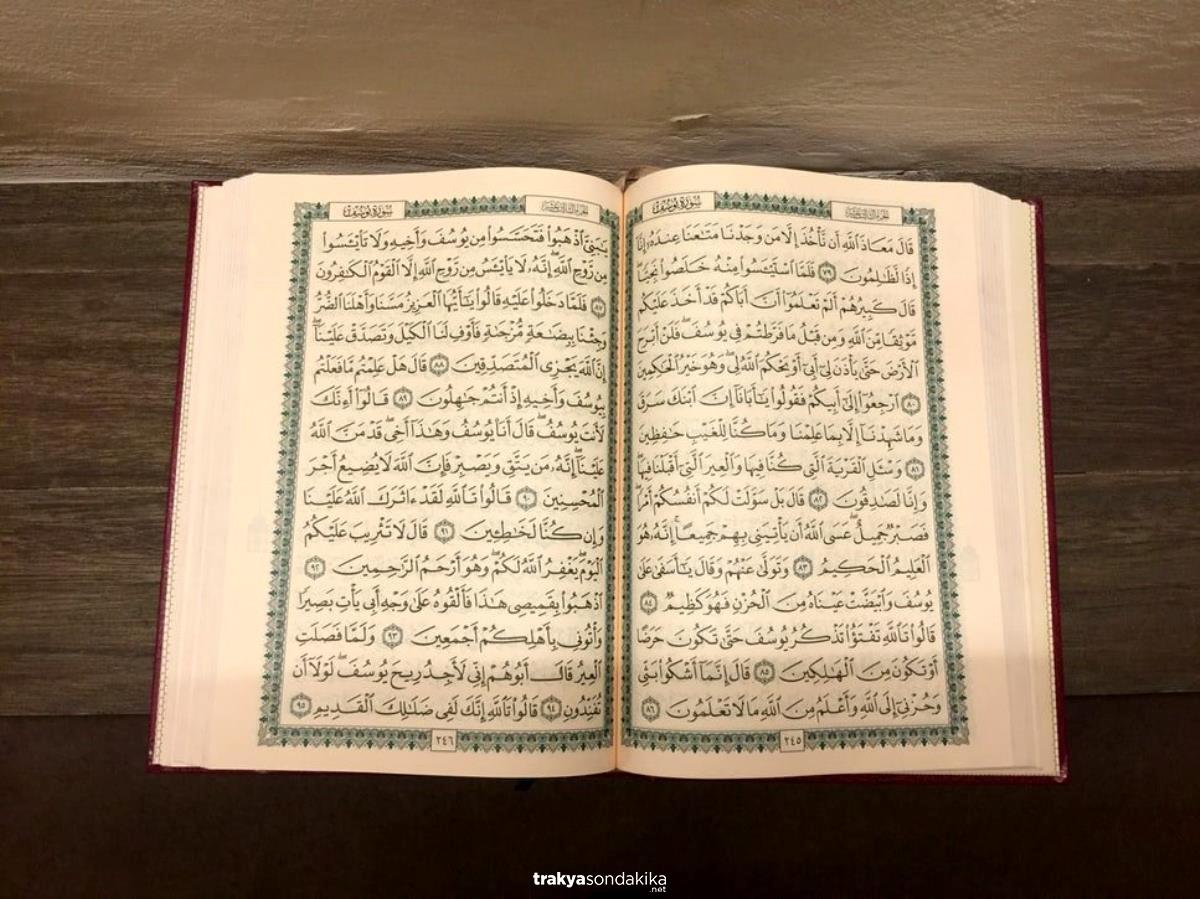 سورة يوسف
الجزء الثالث عشر
قَالَ مَعَاذَ ٱللَّهِ أَن نَّأْخُذَ إِلَّا مَن وَجَدْنَا مَتَـٰعَنَا عِندَهُۥٓ إِنَّآ
إِذًا لَّظَـٰلِمُونَ ٧٩ فَلَمَّا ٱسْتَيْـَٔسُوا۟ مِنْهُ خَلَصُوا۟ نَجِيًّا
قَالَ كَبِيرُهُمْ أَلَمْ تَعْلَمُوٓا۟ أَنَّ أَبَاكُمْ قَدْ أَخَذَ عَلَيْكُم
مَّوْثِقًا مِّنَ ٱللَّهِ وَمِن قَبْلُ مَا فَرَّطتُمْ فِى يُوسُفَ ۖ فَلَنْ أَبْرَحَ
ٱلْأَرْضَ حَتَّىٰ يَأْذَنَ لِىٓ أَبِىٓ أَوْ يَحْكُمَ ٱللَّهُ لِى ۖ وَهُوَ خَيْرُ ٱلْحَـٰكِمِينَ
٨٠ ٱرْجِعُوٓا۟ إِلَىٰٓ أَبِيكُمْ فَقُولُوا۟ يَـٰٓأَبَانَآ إِنَّ ٱبْنَكَ سَرَقَ
وَمَا شَهِدْنَآ إِلَّا بِمَا عَلِمْنَا وَمَا كُنَّا لِلْغَيْبِ حَـٰفِظِينَ
٨١ وَسْـَٔلِ ٱلْقَرْيَةَ ٱلَّتِى كُنَّا فِيهَا وَٱلْعِيرَ ٱلَّتِىٓ أَقْبَلْنَا فِيهَا ۖ
وَإِنَّا لَصَـٰدِقُونَ ٨٢ قَالَ بَلْ سَوَّلَتْ لَكُمْ أَنفُسُكُمْ أَمْرًا ۖ
فَصَبْرٌ جَمِيلٌ ۖ عَسَى ٱللَّهُ أَن يَأْتِيَنِى بِهِمْ جَمِيعًا ۚ إِنَّهُۥ هُوَ
ٱلْعَلِيمُ ٱلْحَكِيمُ ٨٣ وَتَوَلَّىٰ عَنْهُمْ وَقَالَ يَـٰٓأَسَفَىٰ عَلَىٰ
يُوسُفَ وَٱبْيَضَّتْ عَيْنَاهُ مِنَ ٱلْحُزْنِ فَهُوَ كَظِيمٌ ٨٤
قَالُوا۟ تَٱللَّهِ تَفْتَؤُا۟ تَذْكُرُ يُوسُفَ حَتَّىٰ تَكُونَ حَرَضًا
أَوْ تَكُونَ مِنَ ٱلْهَـٰلِكِينَ ٨٥ قَالَ إِنَّمَآ أَشْكُوا۟ بَثِّى
وَحُزْنِىٓ إِلَى ٱللَّهِ وَأَعْلَمُ مِنَ ٱللَّهِ مَا لَا تَعْلَمُونَ ٨٦
٢٤٥
الجزء الثالث عشر
سورة يوسف
يَـٰبَنِىَّ ٱذْهَبُوا۟ فَتَحَسَّسُوا۟ مِن يُوسُفَ وَأَخِيهِ وَلَا تَا۟يْـَٔسُوا۟
مِن رَّوْحِ ٱللَّهِ ۖ إِنَّهُۥ لَا يَا۟يْـَٔسُ مِن رَّوْحِ ٱللَّهِ إِلَّا ٱلْقَوْمُ ٱلْكَـٰفِرُونَ
٨٧ فَلَمَّا دَخَلُوا۟ عَلَيْهِ قَالُوا۟ يَـٰٓأَيُّهَا ٱلْعَزِيزُ مَسَّنَا وَأَهْلَنَا ٱلضُّرُّ
وَجِئْنَا بِبِضَـٰعَةٍ مُّزْجَىٰةٍ فَأَوْفِ لَنَا ٱلْكَيْلَ وَتَصَدَّقْ عَلَيْنَآ ۖ
إِنَّ ٱللَّهَ يَجْزِى ٱلْمُتَصَدِّقِينَ ٨٨ قَالَ هَلْ عَلِمْتُم مَّا فَعَلْتُم
بِيُوسُفَ وَأَخِيهِ إِذْ أَنتُمْ جَـٰهِلُونَ ٨٩ قَالُوٓا۟ أَءِنَّكَ
لَأَنتَ يُوسُفُ ۖ قَالَ أَنَا۠ يُوسُفُ وَهَـٰذَآ أَخِى ۖ قَدْ مَنَّ ٱللَّهُ
عَلَيْنَآ ۖ إِنَّهُۥ مَن يَتَّقِ وَيَصْبِرْ فَإِنَّ ٱللَّهَ لَا يُضِيعُ أَجْرَ
ٱلْمُحْسِنِينَ ٩٠ قَالُوا۟ تَٱللَّهِ لَقَدْ ءَاثَرَكَ ٱللَّهُ عَلَيْنَا
وَإِن كُنَّا لَخَـٰطِـِٔينَ ٩١ قَالَ لَا تَثْرِيبَ عَلَيْكُمُ
ٱلْيَوْمَ ۖ يَغْفِرُ ٱللَّهُ لَكُمْ ۖ وَهُوَ أَرْحَمُ ٱلرَّٰحِمِينَ ٩٢
ٱذْهَبُوا۟ بِقَمِيصِى هَـٰذَا فَأَلْقُوهُ عَلَىٰ وَجْهِ أَبِى يَأْتِ بَصِيرًا
وَأْتُونِى بِأَهْلِكُمْ أَجْمَعِينَ ٩٣ وَلَمَّا فَصَلَتِ
ٱلْعِيرُ قَالَ أَبُوهُمْ إِنِّى لَأَجِدُ رِيحَ يُوسُفَ ۖ لَوْلَآ أَن
تُفَنِّدُونِ ٩٤ قَالُوا۟ تَٱللَّهِ إِنَّكَ لَفِى ضَلَـٰلِكَ ٱلْقَدِيمِ ٩٥
٢٤٦
trakyasondakika
.net